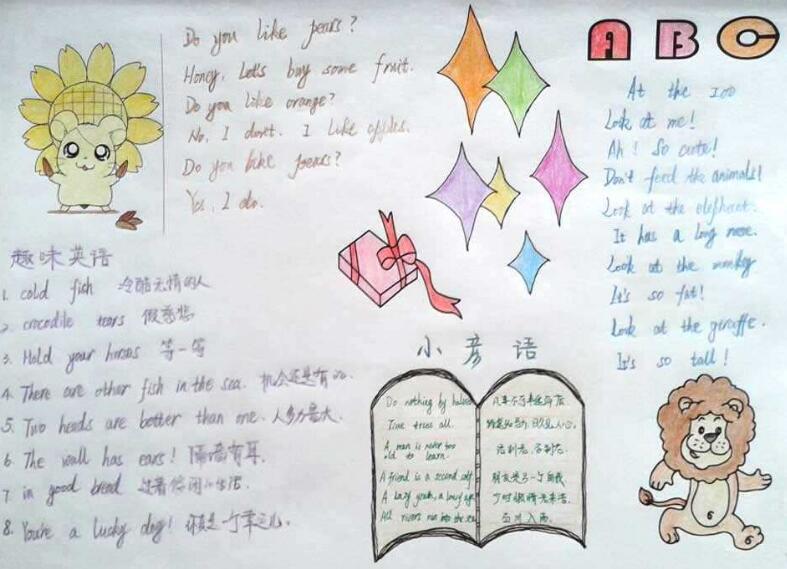 Do you like pears?
Honey, Let's buy some fruit.
Do you like orange?
No, I don't. I like apples.
Do you like pears?
Yes, I do.
A B C
At the zoo
Look at me!
Ah! So cute!
Don't feed the animals!
Look at the elephant.
It has a long nose.
Look at the monkey
It's so fat!
Look at the giraffe.
It's so tall!
趣味英语
1. cold fish 冷酷无情的人
2. crocodile tears 假慈悲
3. Hold your horses 等一等
4. There are other fish in the sea. 机会还是有的.
5. Two heads are better than one. 人多力量大.
6. The wall has ears! 隔墙有耳.
7. in good bread 过着悠闲的生活.
8. You're a lucky dog! 你真是一个幸运儿.
小 彦 语
Do nothing by halves 凡事不可半途而废
Time tries all. 日久见人心.
A man is never too
old to learn. 活到老,学到老.
A friend is a second self. 朋友是另一个自我
A lazy youth, a lousy age 少时懒惰老来
All rivers run into the sea 百川入海.
6 6